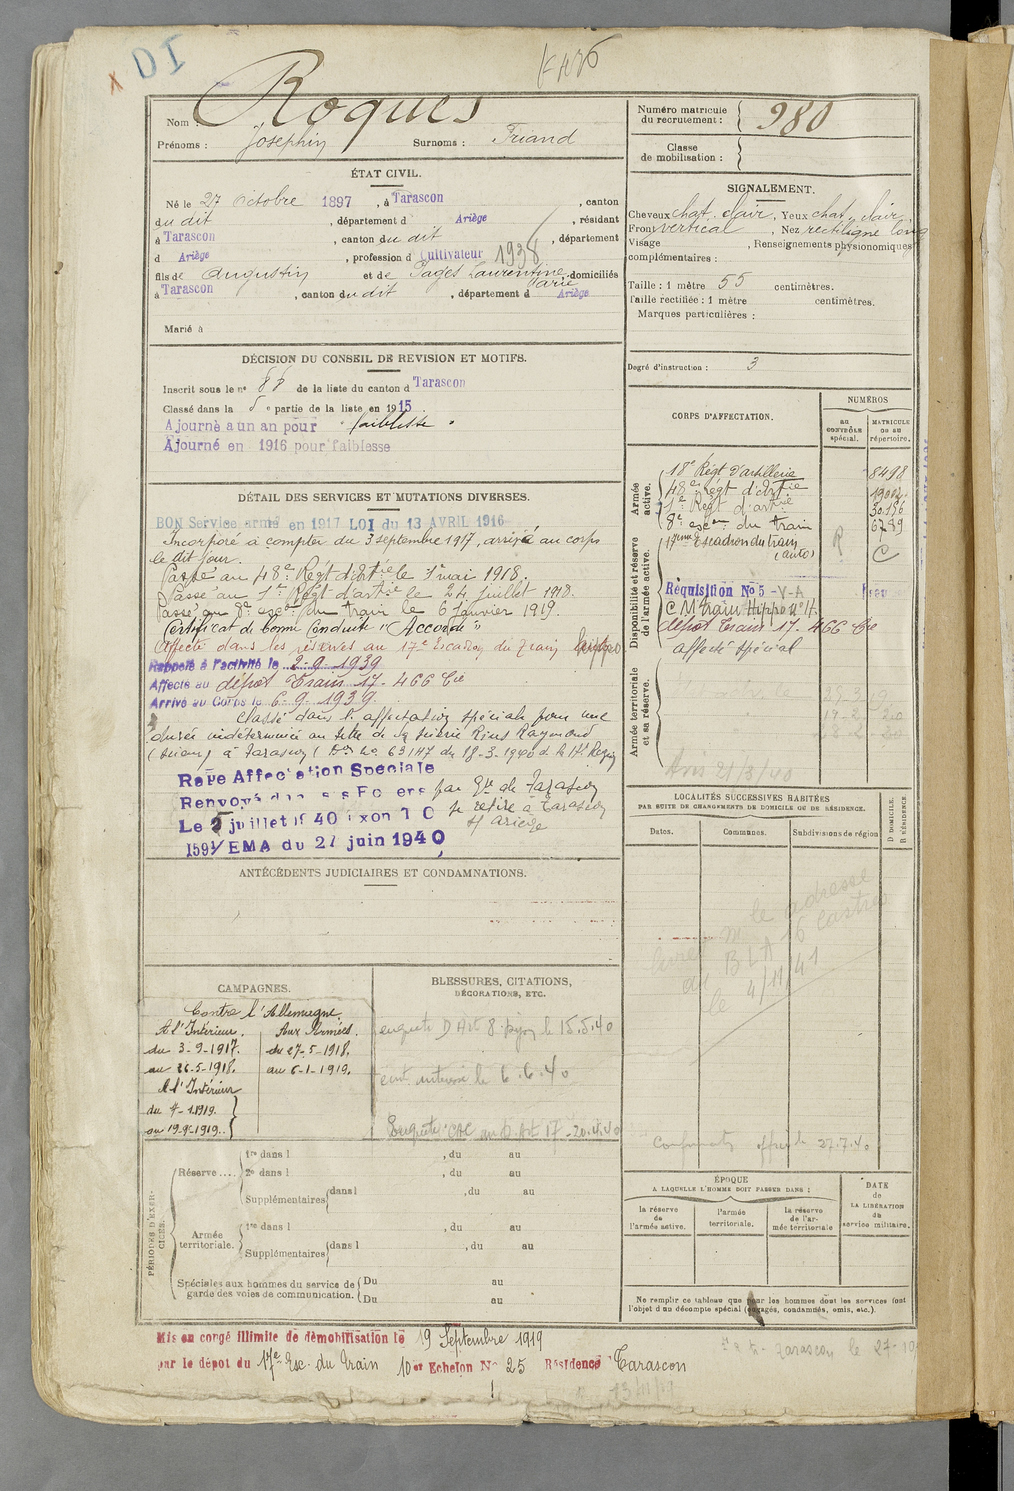 DI
Nom : Roques
Prénoms : Josephin Surnoms : Friand
ÉTAT CIVIL.
Né le 27 Octobre 1897, à Tarascon, canton
du dit, département d Ariège, résidant
à Tarascon, canton du dit, département
d Ariège, profession d Cultivateur 1938
fils de Augustin et de Pagès Laurentine Marie, domiciliés
à Tarascon, canton du dit, département d Ariège
Marié à
DÉCISION DU CONSEIL DE REVISION ET MOTIFS.
Inscrit sous le n° 88 de la liste du canton d Tarascon
Classé dans la 5e partie de la liste en 1915
Ajourné a un an pour "faiblesse"
Ajourné en 1916 pour faiblesse
DÉTAIL DES SERVICES ET MUTATIONS DIVERSES.
BON Service armé en 1917 LOI du 13 AVRIL 1916
Incorporé à compter du 3 septembre 1917, arrivé au corps
le dit jour.
Passé au 48e Régt d'Artie le 1er mai 1918.
Passé au 1er Régt d'artie le 24 juillet 1918.
Passé au 8e escon du train le 6 Janvier 1919.
Certificat de bonne Conduite "Accordé"
Affecté dans les réserves au 17e Escadron du Train hippo
Rappelé à l'activité le 2-9-1939
Affecté au dépôt Train 17-466 Cie
Arrivé au Corps le 6-9-1939.
Classé dans l'affectation spéciale pour une
durée indéterminée au titre de la scierie Rius Raymond
(scieur) à Tarascon (Don No 631H7 du 18-3-1940 d. la 17e Région
Rayé Affectation Speciale
Renvoyé dans ses Foyers par Gie de Tarascon
Le 5 juillet 1940 se retire à Tarascon
s/ Ariège
1591/EMA du 27 juin 1940
ANTÉCÉDENTS JUDICIAIRES ET CONDAMNATIONS.
CAMPAGNES.
Contre l'Allemagne.
A l'Intérieur. Aux Armées.
du 3-9-1917. du 27-5-1918.
au 26-5-1918. au 6-1-1919.
A l'Intérieur
du 7-1-1919.
au 19-9-1919.
BLESSURES, CITATIONS,
DÉCORATIONS, ETC.
enquête D Art 8 Dijon le 15.5.40
le 6.6.40
Enquête CAC au D. Art 17-20.4.40
PÉRIODES D'EXERCICES.
Réserve....
1re dans l , du au
2e dans l , du au
Supplémentaires dans l , du au
Armée territoriale.
1re dans l , du au
Supplémentaires dans l , du au
Spéciales aux hommes du service de garde des voies de communication.
Du au
Du au
Mis en congé illimité de démobilisation le 19 Septembre 1919
par le dépôt du 17e Esc. du train 10er Echelon N° 25 Résidence Tarascon
Numéro matricule du recrutement : 980
Classe de mobilisation :
SIGNALEMENT.
Cheveux chat. clair, Yeux chat. clair,
Front vertical, Nez rectiligne long
Visage , Renseignements physionomiques
complémentaires :
Taille : 1 mètre 55 centimètres.
Taille rectifiée : 1 mètre centimètres.
Marques particulières :
Degré d'instruction : 3
CORPS D'AFFECTATION.
NUMÉROS
au CONTRÔLE spécial.
MATRICULE ou au répertoire.
Armée active.
18e Régt d'artillerie 8498
48e régt d'artie 19012
1er Régt d'artie 30156
8e escon du train 6789
Disponibilité et réserve de l'armée active.
17ème Escadron du train (auto) R C
Réquisition No 5-V-A
C M train Hippo n° 17.
dépôt train 17-466 Cie
affecté spécial
Armée territoriale et sa réserve.
25-3-19
Avis 21/3/40
LOCALITÉS SUCCESSIVES HABITÉES
PAR SUITE DE CHANGEMENTS DE DOMICILE OU DE RÉSIDENCE.
D DOMICILE. R RÉSIDENCE
Dates. Communes. Subdivisions de région
le adressé
Livret M 16 Castres
du BLA
le 4/11/41
27.7.40
ÉPOQUE
A LAQUELLE L'HOMME DOIT PASSER DANS :
la réserve de l'armée active.
l'armée territoriale.
la réserve de l'armée territoriale
DATE de LA LIBÉRATION du service militaire.
Ne remplir ce tableau que pour les hommes dont les services font
l'objet d'un décompte spécial (engagés, condamnés, omis, etc.).
Tarascon le 27-10